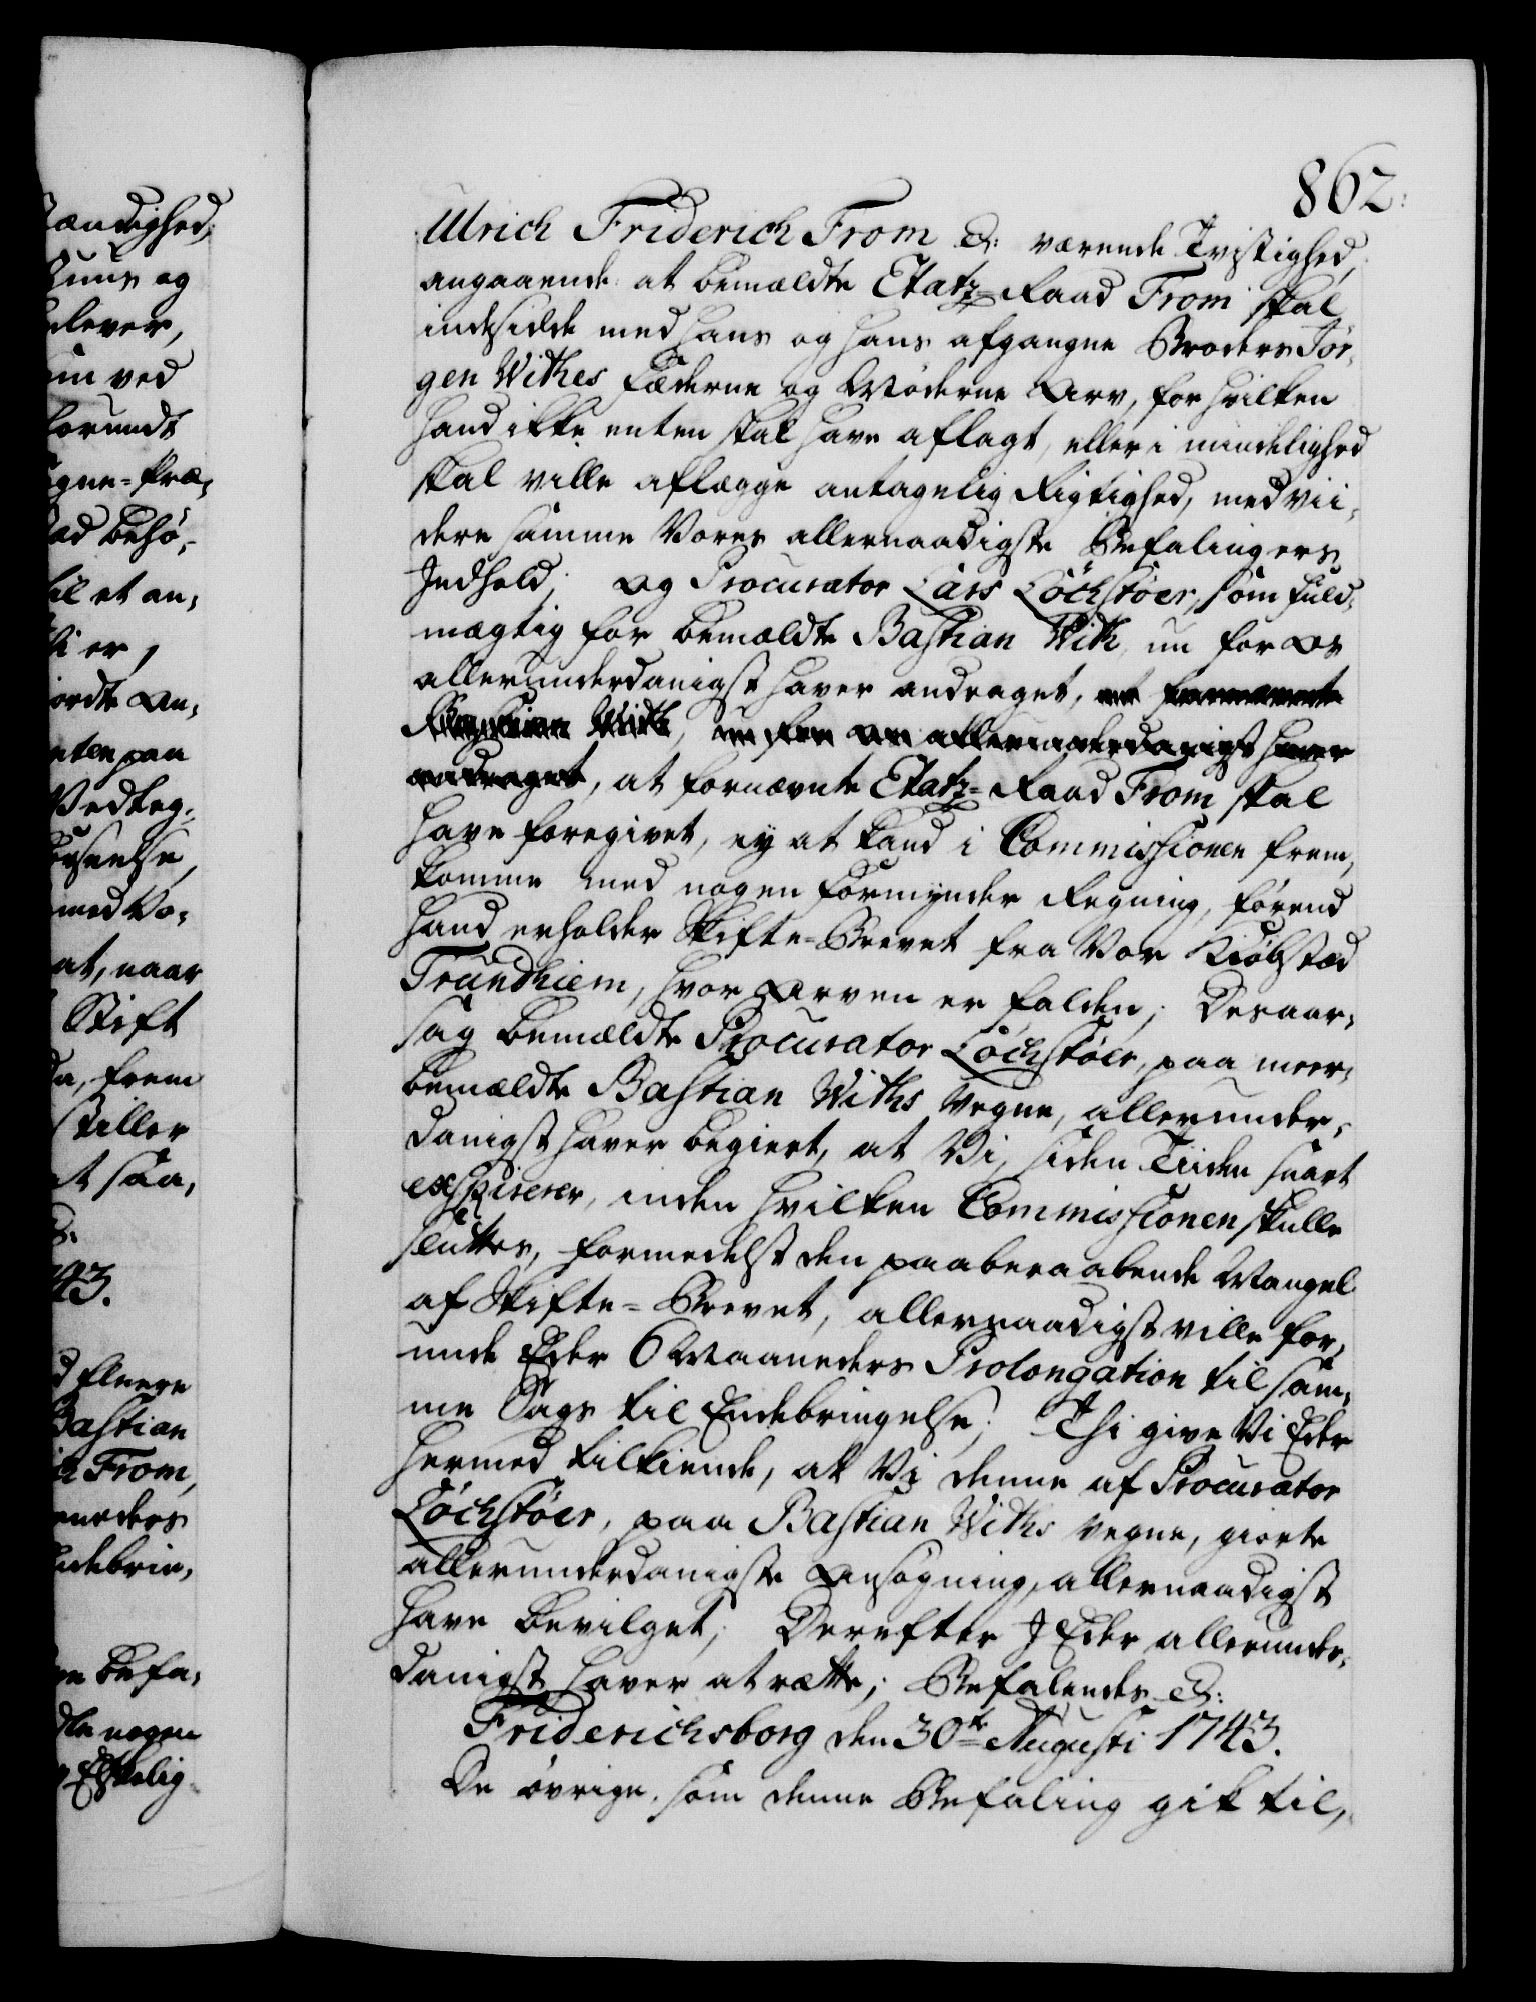 862.
Ulrich Friderich From &: værende Tvistighed,
angaaende at bemældte Etatz-Raad From skal
indesidde med hans og hans afgangne Broders Jör,
gen Withes Fæderne og Møderne Arv, for hvilken
hand ikke enten skal have aflagt, eller i mindelighed
skal ville aflægge antagelig Rigtighed, med vii,
dere samme Vores allernaadigste Befalingers
Indhold; og Procurator Lars Löchstöer, som fuld,
mægtig for bemældte Bastian With, nu for os
allerunderdanigst haver andraget,
, at fornævnte Etatz-Raad From skal
have foregivet, ey at kand i Commissionen frem,
komme med nogen Formynder Regning, förend
hand erholder Skifte-Brevet fra Vor Kiöbstæd
Trundhiem, hvor Arven er falden; Desaar,
sag bemældte Procurator Löchstöer, paa meer,
bemældte Bastian Withs Vegne, allerunder,
danigst haver begiert, at Vi, siden Tiiden snart
exspirerer, inden hvilken Commissionen skulle
sluttes, formedelst den paaberaabende Mangel
af Skifte-Brevet, allernaadigst ville for,
unde Eder 6 Maaneders Prolongation til sam,
me Sags til Endebringelse; Thi give Vi Eder
hermed tilkiende, at Vi denne af Procurator
Löchstöer, paa Bastian Withs vegne, giorte
allerunderdanigste Ansögning, allernaadigst
have bevilget; Derefter I Eder allerunder,
danigst haver at rætte; Befalendes &:
Friderichsborg den 30te Augusti 1743.
De övrige, som denne Befaling gik til,